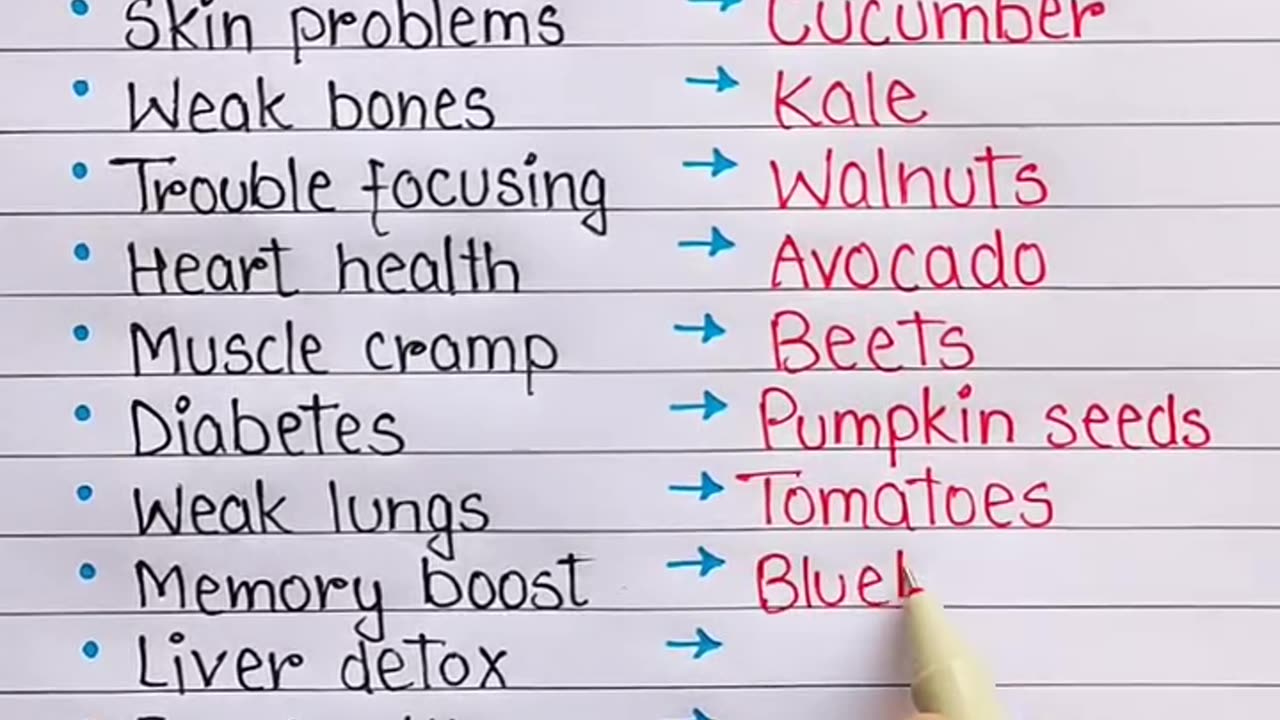 • Skin problems → Cucumber
• Weak bones → Kale
• Trouble focusing → Walnuts
• Heart health → Avocado
• Muscle cramp → Beets
• Diabetes → Pumpkin seeds
• Weak lungs → Tomatoes
• Memory boost → Blue
• Liver detox →